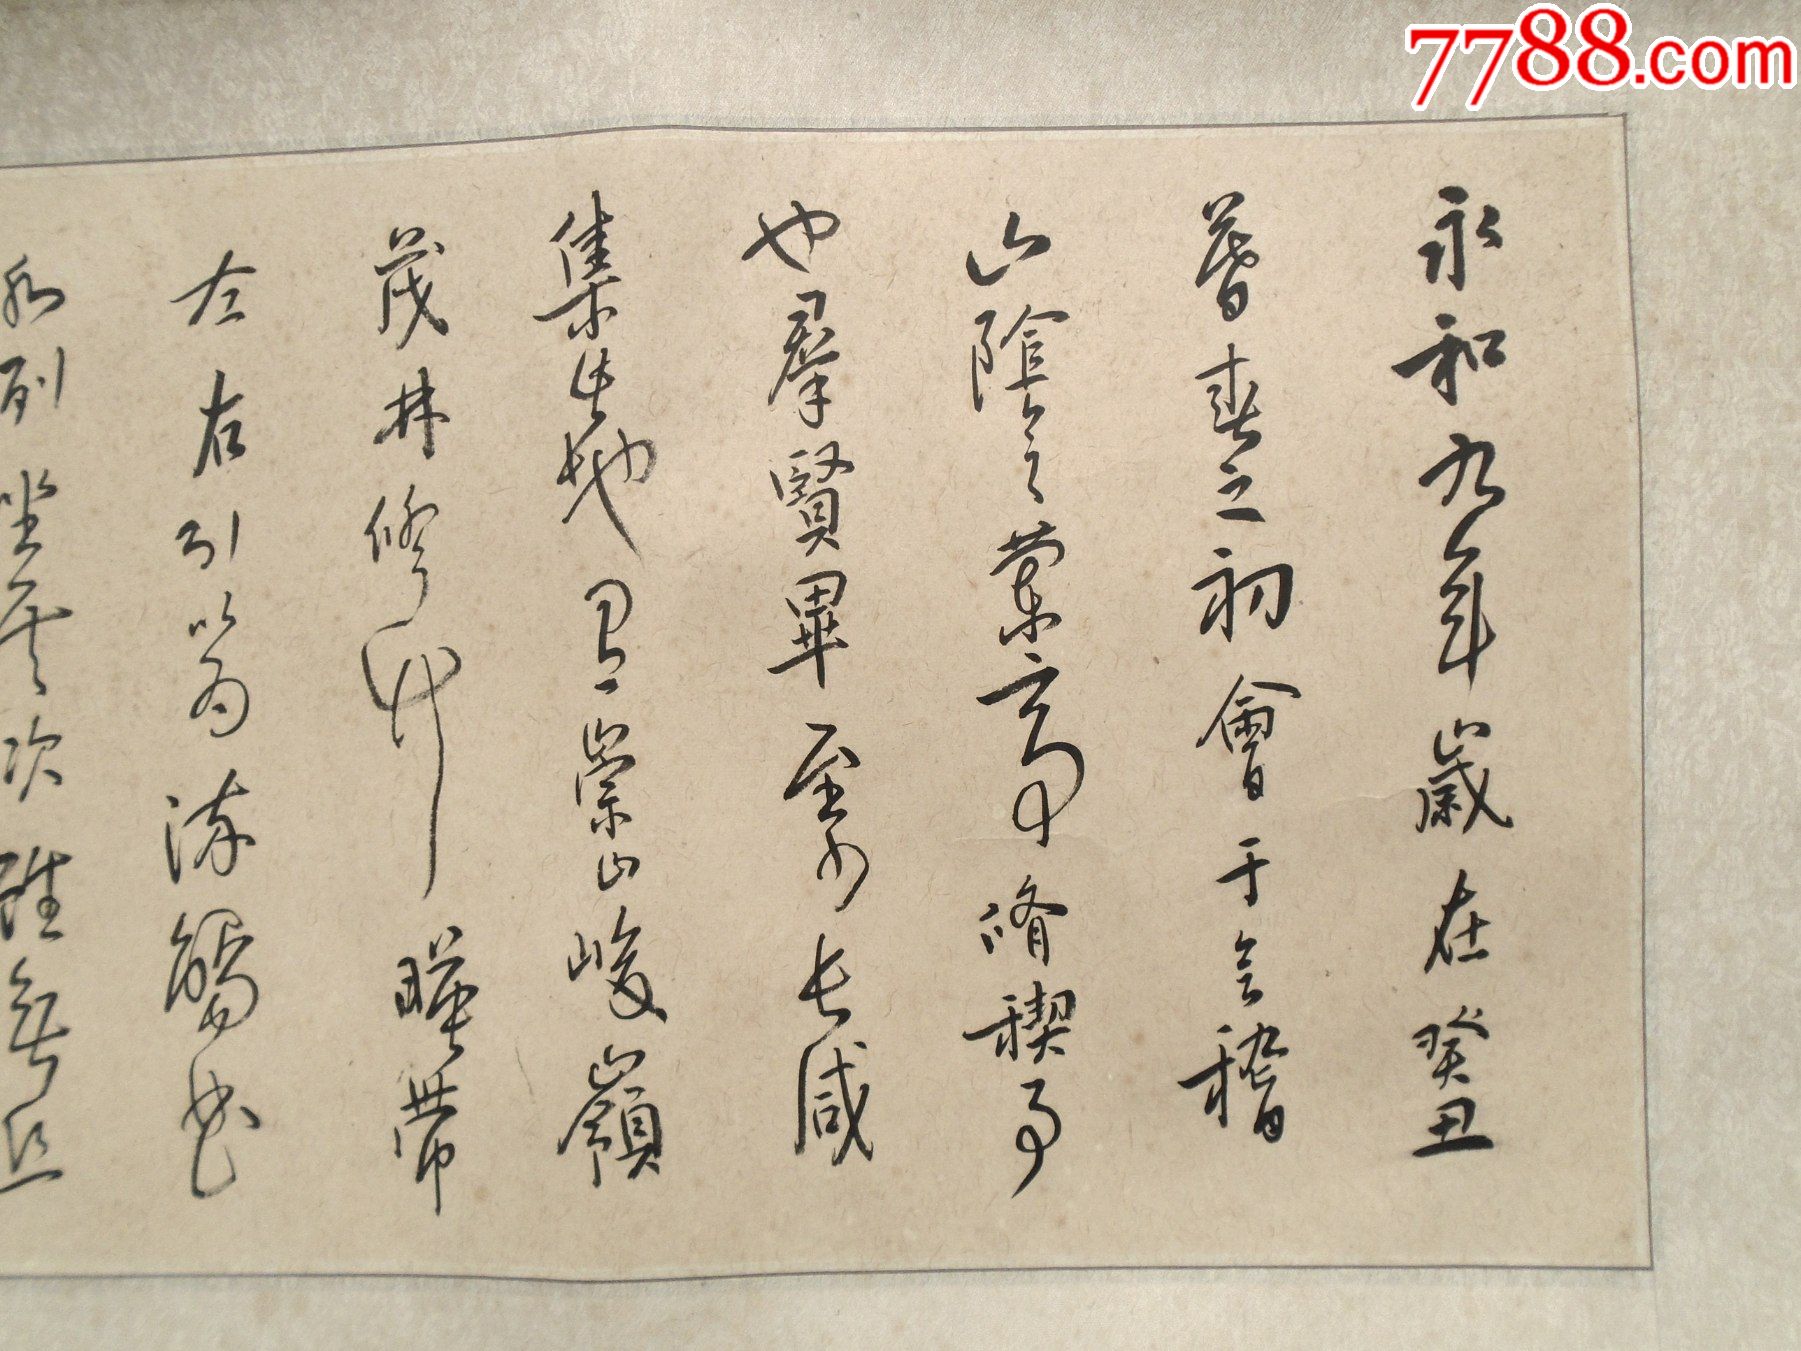 7788.com
永和九年歲在癸丑
暮春之初會于会稽
山陰之蘭亭脩稧事
也羣賢畢至少長咸
集此地有崇山峻嶺
茂林脩竹暎帶
左右引以為流觴曲
水列坐其次雖無絲